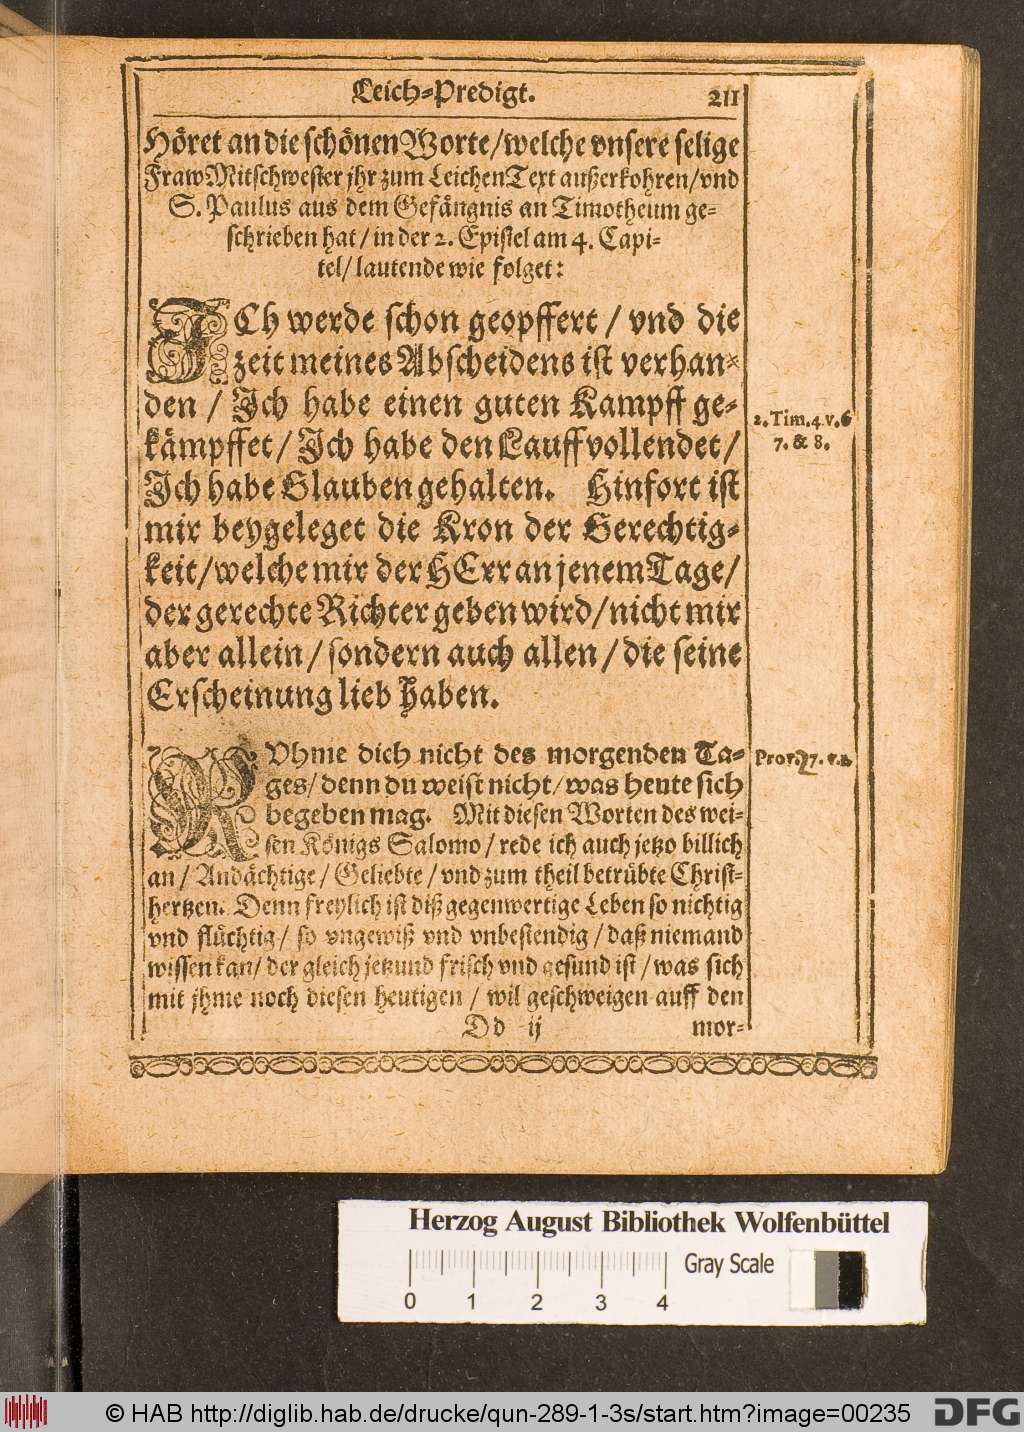 Leich-Predigt. 211
Höret an die schönen Worte/welche vnsere selige
Fraw Mitschwester jhr zum Leichen Text außerkohren/vnd
S. Paulus aus dem Gefängnis an Timotheum ge-
schrieben hat/in der 2. Epistel am 4. Capi-
tel/lautende wie folget:
ICh werde schon geopffert / vnd die
zeit meines Abscheidens ist verhan-
den / Ich habe einen guten Kampff ge-
kämpffet/ Ich habe den Lauff vollendet/
Ich habe Glauben gehalten. Hinfort ist
mir beygeleget die Kron der Gerechtig-
keit/welche mir der HErr an jenem Tage/
der gerechte Richter geben wird/nicht mir
aber allein/sondern auch allen/die seine
Erscheinung lieb haben.
2. Tim. 4. v. 6
7. & 8.
RVhme dich nicht des morgenden Ta-
ges/denn du weist nicht/was heute sich
begeben mag. Mit diesen Worten des wei-
sen Königs Salomo/rede ich auch jetzo billich
an/ Andächtige/Geliebte/vnd zum theil betrübte Christ-
hertzen. Denn freylich ist diß gegenwertige Leben so nichtig
vnd flüchtig/ so vngewiß vnd vnbestendig/daß niemand
wissen kan/der gleich jetzund frisch vnd gesund ist/was sich
mit jhme noch diesen heutigen / wil geschweigen auff den
Dd ij mor-
Prov. 27. v. 1.
Herzog August Bibliothek Wolfenbüttel
Gray Scale
0 1 2 3 4
© HAB http://diglib.hab.de/drucke/qun-289-1-3s/start.htm?image=00235 DFG